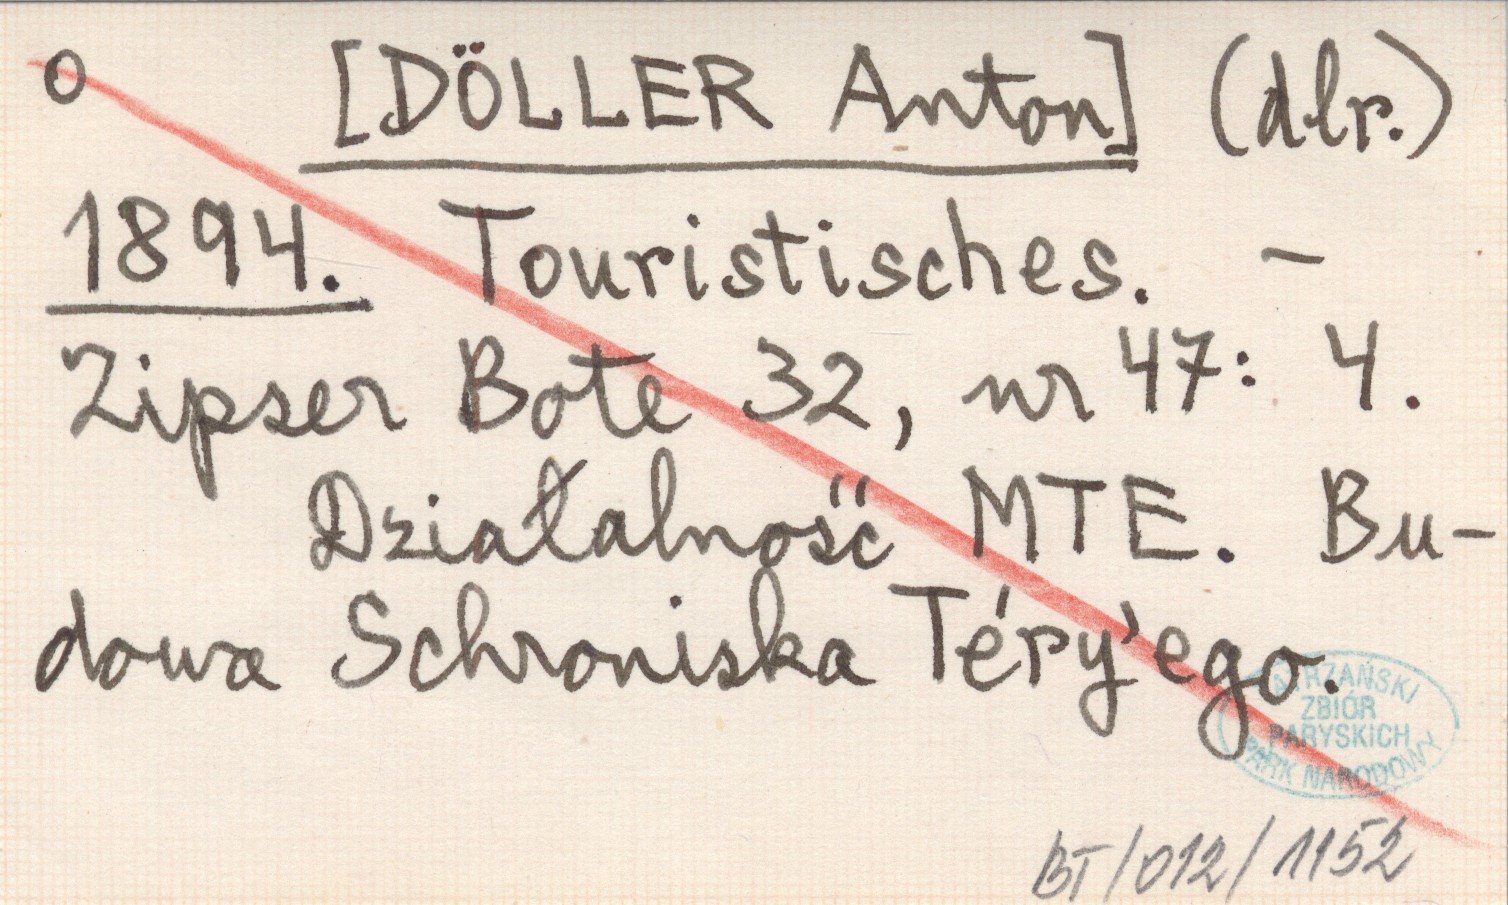 o [DÖLLER Anton] (dlr.)
1894. Touristisches. –
Zipser Bote 32, nr 47: 4.
Działalność MTE. Bu-
dowa Schroniska Téry'ego.
TATRZAŃSKI
ZBIÓR
PARYSKICH
PARK NARODOWY
BT/012/1152